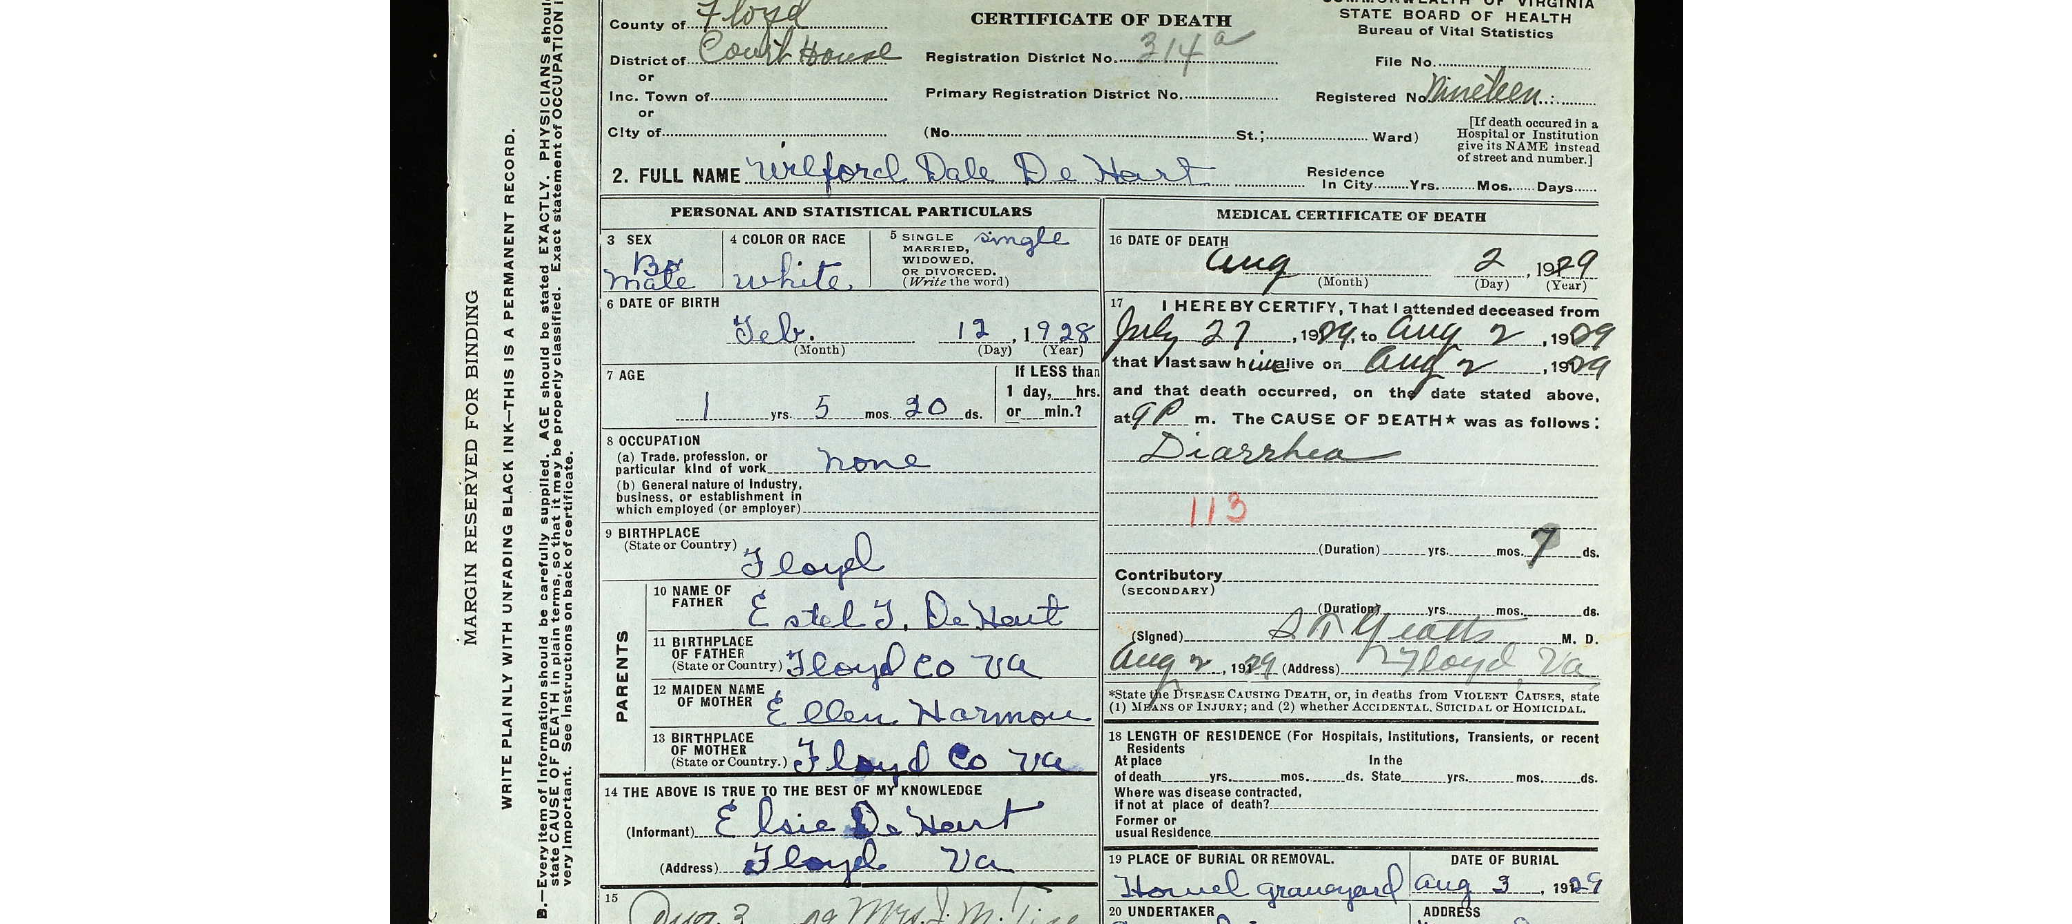 County of Floyd
CERTIFICATE OF DEATH
COMMONWEALTH OF VIRGINIA
STATE BOARD OF HEALTH
Bureau of Vital Statistics
District of Court House
Registration District No. 314a
File No.
or
Inc. Town of
Primary Registration District No.
Registered No. Nineteen
or
City of
(No. St.; Ward)
[If death occured in a
Hospital or Institution
give its NAME instead
of street and number.]
2. FULL NAME Wilford Dale De Hart
Residence
In City Yrs. Mos. Days
PERSONAL AND STATISTICAL PARTICULARS
3 SEX
Male
4 COLOR OR RACE
White
5 SINGLE
MARRIED,
WIDOWED,
OR DIVORCED.
(Write the word)
single
6 DATE OF BIRTH
Feb. 12, 1928
(Month) (Day) (Year)
7 AGE
1 yrs. 5 mos. 20 ds.
If LESS than
1 day, hrs.
or min.?
8 OCCUPATION
(a) Trade, profession, or
particular kind of work none
(b) General nature of Industry,
business, or establishment in
which employed (or employer)
9 BIRTHPLACE
(State or Country)
Floyd
PARENTS
10 NAME OF
FATHER
Estel F. De Hart
11 BIRTHPLACE
OF FATHER
(State or Country) Floyd Co Va
12 MAIDEN NAME
OF MOTHER
Ellen Harmon
13 BIRTHPLACE
OF MOTHER
(State or Country.) Floyd Co Va
14 THE ABOVE IS TRUE TO THE BEST OF MY KNOWLEDGE
(Informant) Elsie De Hart
(Address) Floyd Va
15
MEDICAL CERTIFICATE OF DEATH
16 DATE OF DEATH
Aug 2, 1929
(Month) (Day) (Year)
17 I HEREBY CERTIFY, That I attended deceased from
July 27, 1929, to Aug 2, 1929
that I last saw him alive on Aug 2, 1929
and that death occurred, on the date stated above,
at 9 P m. The CAUSE OF DEATH★ was as follows:
Diarrhea
113
(Duration) yrs. mos. 7 ds.
Contributory
(SECONDARY)
(Duration) yrs. mos. ds.
(Signed) M. D.
Aug 2, 1929 (Address) Floyd Va
*State the DISEASE CAUSING DEATH, or, in deaths from VIOLENT CAUSES, state
(1) MEANS OF INJURY; and (2) whether ACCIDENTAL, SUICIDAL or HOMICIDAL.
18 LENGTH OF RESIDENCE (For Hospitals, Institutions, Transients, or recent
Residents
At place In the
of death yrs. mos. ds. State yrs. mos. ds.
Where was disease contracted,
if not at place of death?
Former or
usual Residence
19 PLACE OF BURIAL OR REMOVAL.
DATE OF BURIAL
graveyard
Aug 3, 1929
20 UNDERTAKER
ADDRESS
MARGIN RESERVED FOR BINDING
WRITE PLAINLY WITH UNFADING BLACK INK—THIS IS A PERMANENT RECORD.
B.—Every item of Information should be carefully supplied. AGE should be stated EXACTLY. PHYSICIANS shoul
state CAUSE OF DEATH in plain terms, so that it may be properly classified. Exact statement of OCCUPATION i
very important. See Instructions on back of certificate.